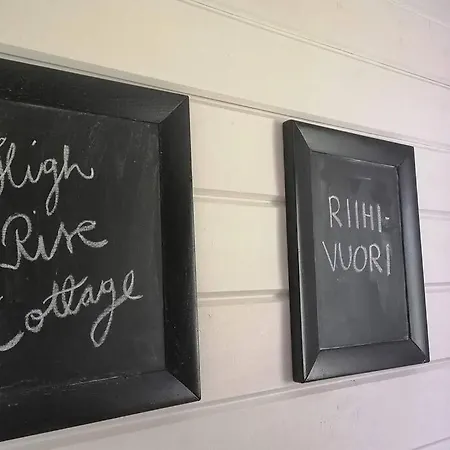 High
Rise
Cottage
RIIHI-
VUORI